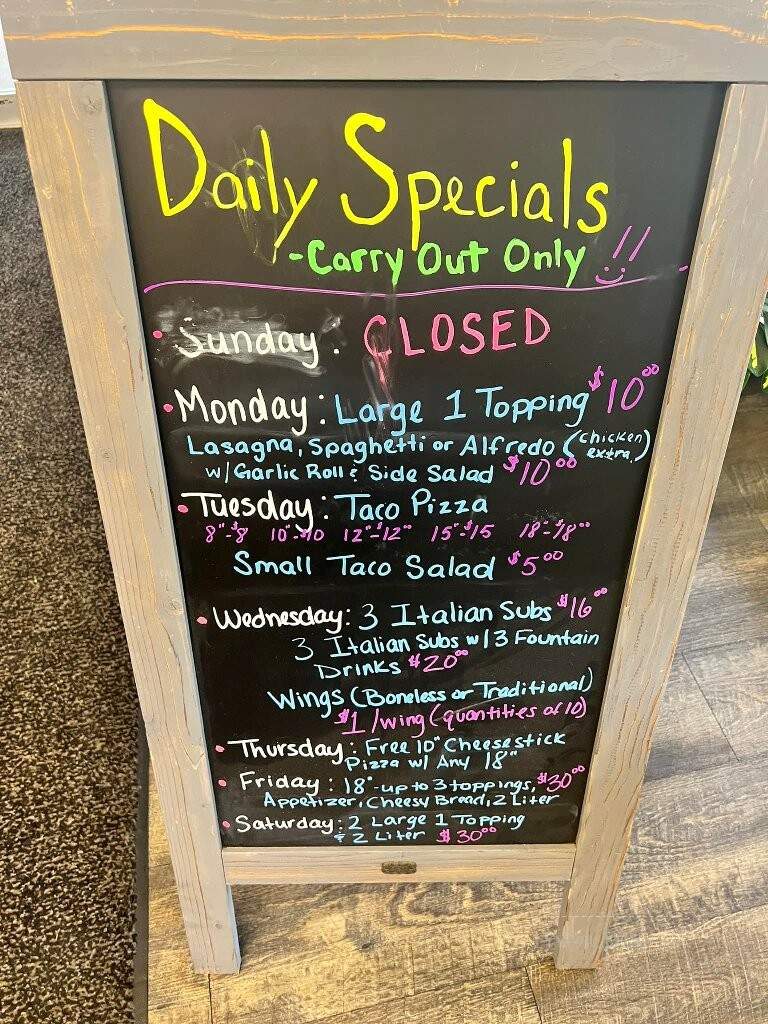 Daily Specials
-Carry Out Only !!
• Sunday: CLOSED
• Monday: Large 1 Topping $10.00
Lasagna, Spaghetti or Alfredo (chicken extra)
w/ Garlic Roll & Side Salad $10.00
• Tuesday: Taco Pizza
8"-$8 10"-$10 12"-$12.00 15"-$15 18"-$18.00
Small Taco Salad $5.00
• Wednesday: 3 Italian Subs $16.00
3 Italian Subs w/ 3 Fountain
Drinks $20.00
Wings (Boneless or Traditional)
$1/wing (quantities of 10)
• Thursday: Free 10" Cheesestick
Pizza w/ Any 18"
• Friday: 18"-up to 3 toppings, $30.00
Appetizer, Cheesy Bread, 2 Liter
• Saturday: 2 Large 1 Topping
& 2 Liter $30.00